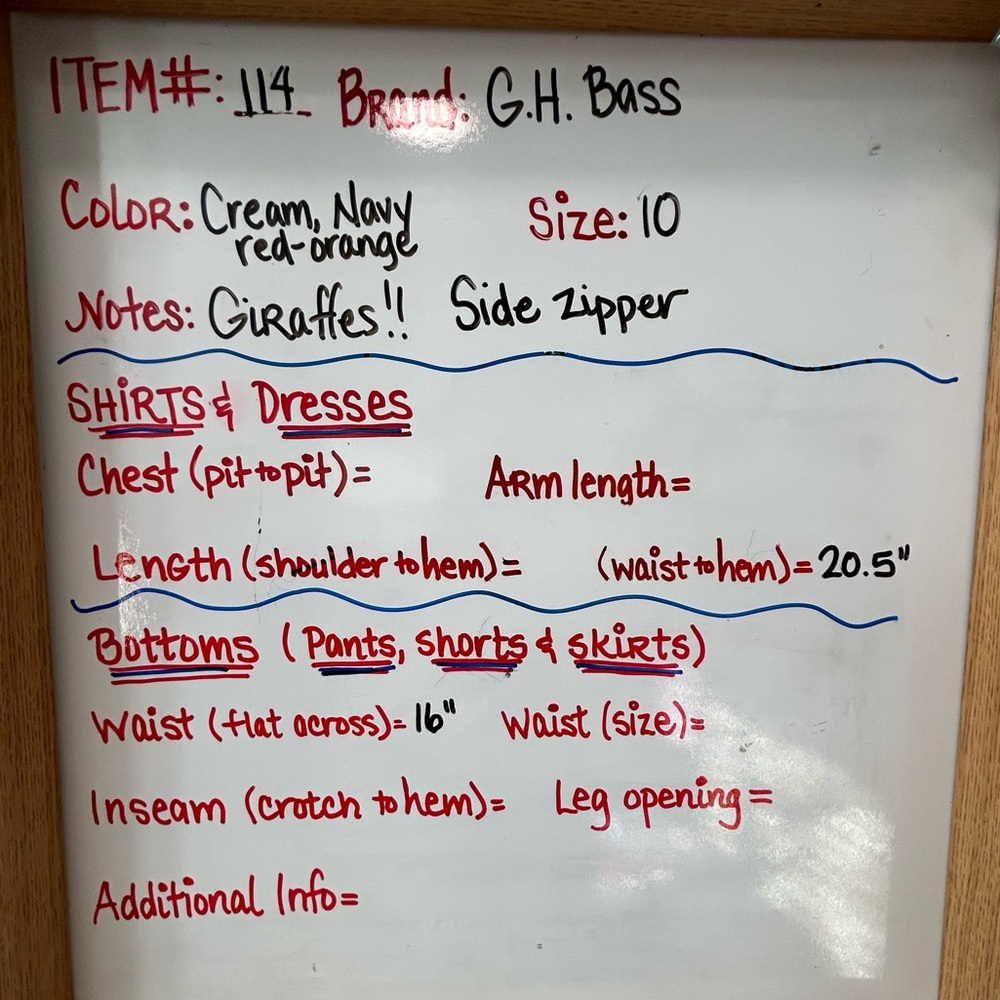 ITEM#: 114 Brand: G.H. Bass
Color: Cream, Navy Size: 10
red-orange
Notes: Giraffes!! Side zipper
SHIRTS & Dresses
Chest (pit to pit)= Arm length=
Length (shoulder to hem)= (waist to hem)= 20.5"
Bottoms (Pants, Shorts & Skirts)
Waist (flat across)= 16" Waist (size)=
Inseam (crotch to hem)= Leg opening=
Additional Info=